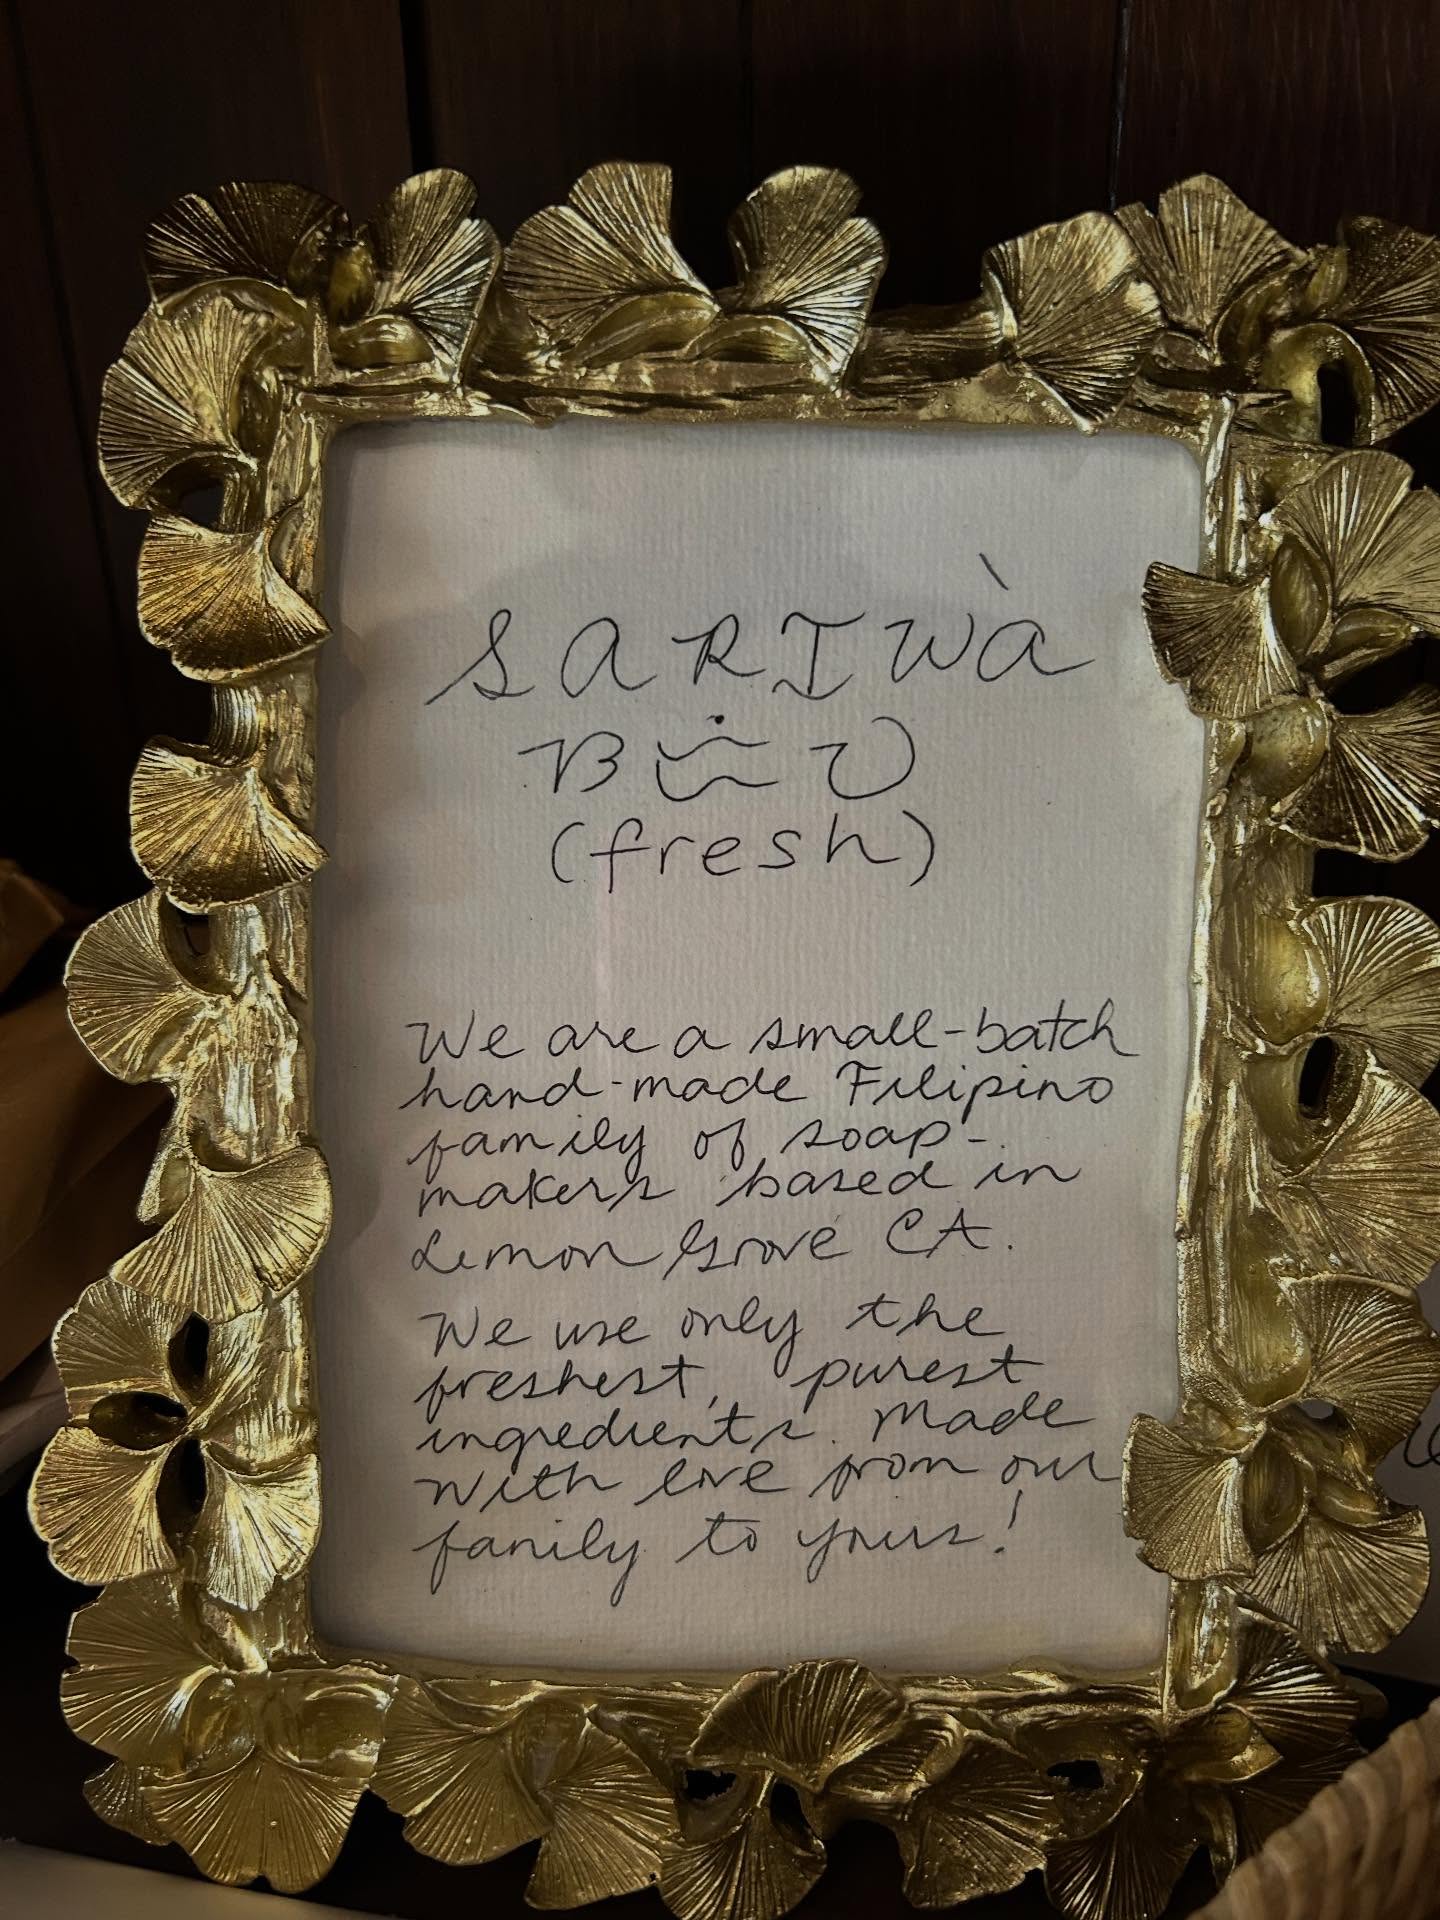 SARIWÀ
ᜐᜇᜒᜏ
(fresh)
We are a small-batch
hand-made Filipino
family of soap-
makers based in
Lemon Grove CA.
We use only the
freshest, purest
ingredients. Made
with love from our
family to yours!